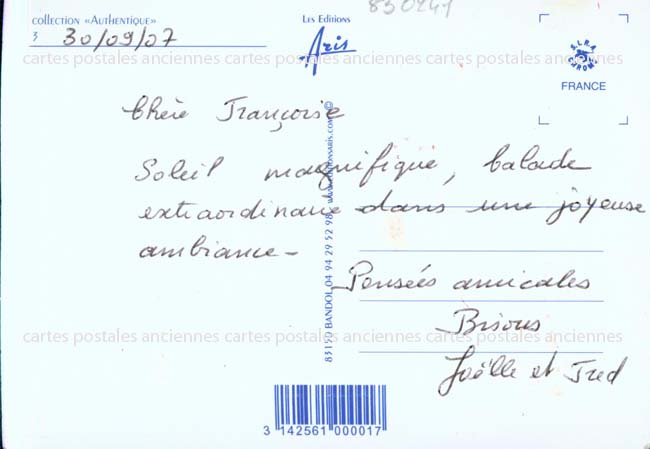 830241
collection «Authentique»
Les Editions
Aris
3 30/09/07
S.L.P.A.
FRANCE
cartes postales anciennes cartes postales anciennes cartes postales anciennes
Chère Françoise
Soleil magnifique, balade
extraordinaire dans une joyeuse
ambiance -
Pensées amicales
Bisous
Joëlle et Fred
83150 BANDOL 04 94 29 52 98
cartes postales anciennes cartes postales anciennes cartes postales anciennes
3 142561 000017